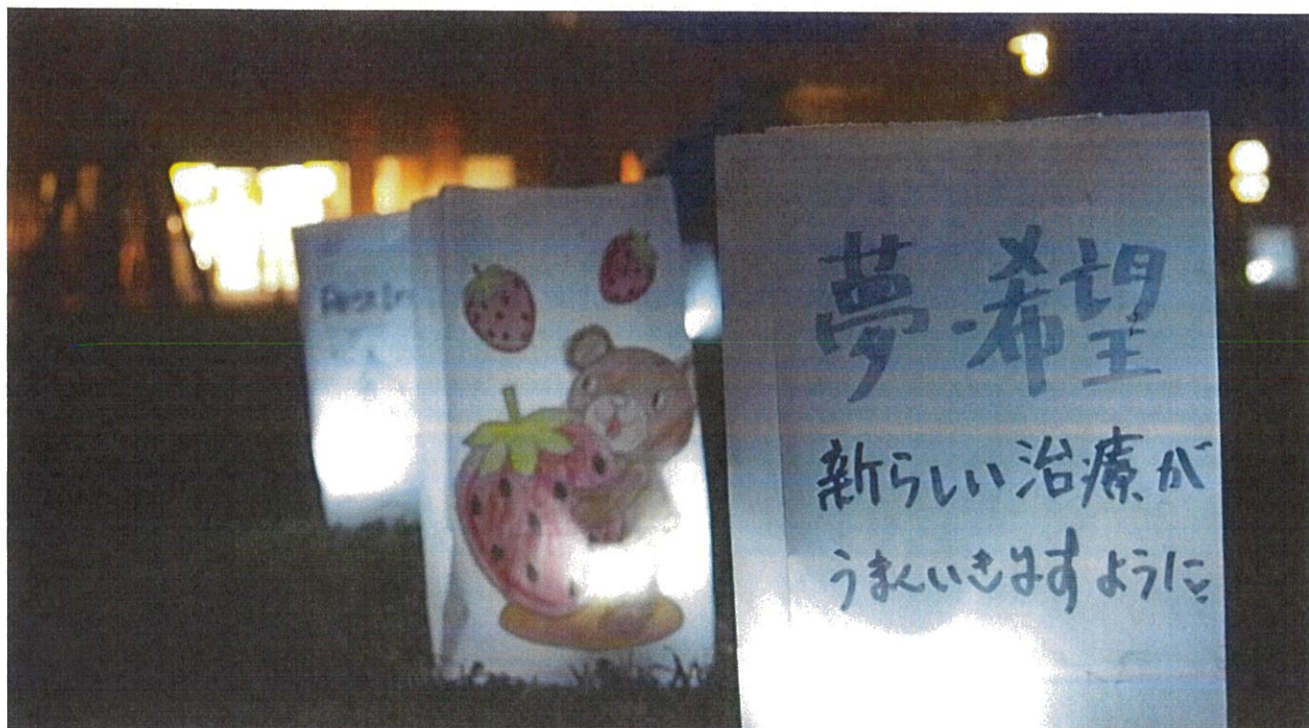 夢・希望
新らしい治療が
うまくいきますように♡